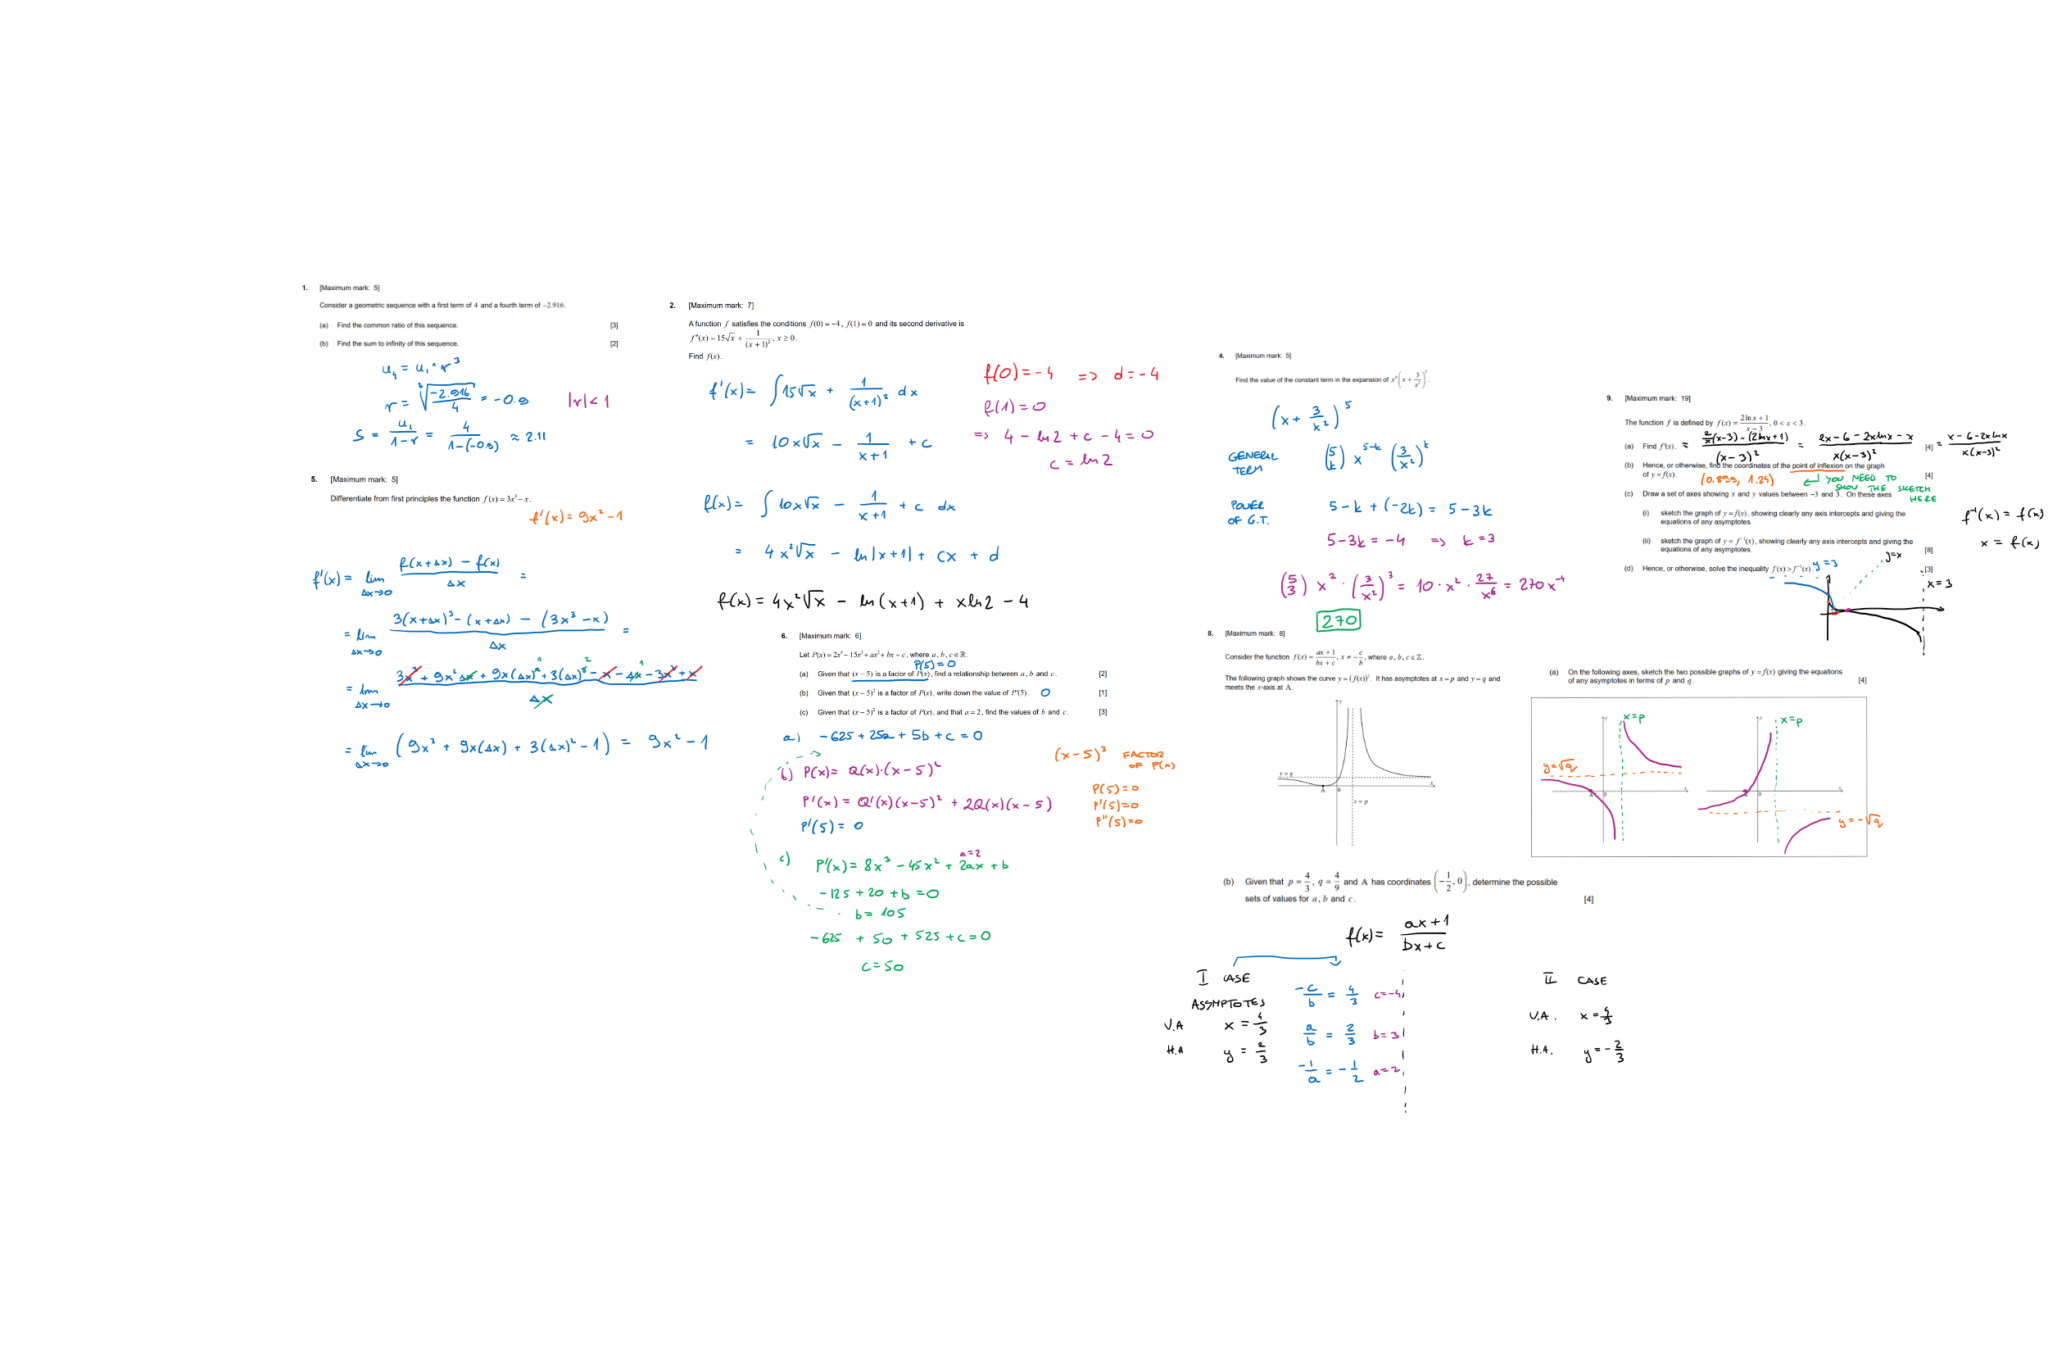 1. [Maximum mark: 5]
Consider a geometric sequence with a first term of 4 and a fourth term of −2.916.
(a) Find the common ratio of this sequence. [3]
(b) Find the sum to infinity of this sequence. [2]
u₄ = u₁ · r³
r = ∛(-2.916/4) = -0.9 |r| < 1
S = u₁/(1-r) = 4/(1-(-0.9)) ≈ 2.11
5. [Maximum mark: 5]
Differentiate from first principles the function f(x) = 3x³ − x.
f'(x) = 9x² - 1
f'(x) = lim Δx→0 (f(x+Δx) - f(x))/Δx =
= lim Δx→0 (3(x+Δx)³ - (x+Δx) - (3x³ - x))/Δx =
= lim Δx→0 (3x³ + 9x²Δx + 9x(Δx)² + 3(Δx)³ - x - Δx - 3x³ + x)/Δx
= lim Δx→0 (9x² + 9x(Δx) + 3(Δx)² - 1) = 9x² - 1
2. [Maximum mark: 7]
A function f satisfies the conditions f(0) = −4, f(1) = 0 and its second derivative is
f''(x) = 15√x + 1/(x+1)², x ≥ 0.
Find f(x).
f'(x) = ∫ 15√x + 1/(x+1)² dx
= 10x√x - 1/(x+1) + c
f(0) = -4 => d = -4
f(1) = 0
=> 4 - ln2 + c - 4 = 0
c = ln2
f(x) = ∫ 10x√x - 1/(x+1) + c dx
= 4x²√x - ln|x+1| + cx + d
f(x) = 4x²√x - ln(x+1) + xln2 - 4
6. [Maximum mark: 6]
Let P(x) = 2x⁴ − 15x³ + ax² + bx + c, where a, b, c ∈ ℝ.
P(5) = 0
(a) Given that (x − 5) is a factor of P(x), find a relationship between a, b and c. [2]
(b) Given that (x − 5)² is a factor of P(x), write down the value of P'(5). 0 [1]
(c) Given that (x − 5)² is a factor of P(x), and that a = 2, find the values of b and c. [3]
a) -625 + 25a + 5b + c = 0
b) P(x) = Q(x)·(x-5)²
P'(x) = Q'(x)(x-5)² + 2Q(x)(x-5)
P'(5) = 0
(x-5)³ FACTOR OF P(x)
P(5) = 0
P'(5) = 0
P''(5) = 0
a=2
c) P'(x) = 8x³ - 45x² + 2ax + b
-125 + 20 + b = 0
b = 105
-625 + 50 + 525 + c = 0
c = 50
4. [Maximum mark: 5]
Find the value of the constant term in the expansion of x⁴(x + 3/x²)⁵.
(x + 3/x²)⁵
GENERAL TERM (5 k) x⁵⁻ᵏ (3/x²)ᵏ
POWER OF G.T. 5 - k + (-2k) = 5 - 3k
5 - 3k = -4 => k = 3
(5 3) x² · (3/x²)³ = 10 · x² · 27/x⁶ = 270x⁻⁴
270
8. [Maximum mark: 8]
Consider the function f(x) = (ax+1)/(bx+c), x ≠ −c/b, where a, b, c ∈ ℤ.
The following graph shows the curve y = (f(x))². It has asymptotes at x = p and y = q and
meets the x-axis at A.
y
y = q
A 0 x
x = p
(a) On the following axes, sketch the two possible graphs of y = f(x) giving the equations
of any asymptotes in terms of p and q. [4]
x=p
y=√q
x=p
y=-√q
(b) Given that p = 4/3, q = 4/9 and A has coordinates (−1/2, 0), determine the possible
sets of values for a, b and c. [4]
f(x) = (ax+1)/(bx+c)
I CASE
ASSMPTOTES
V.A x = 4/3
H.A y = 2/3
-c/b = 4/3 c=-4
a/b = 2/3 b=3
-1/a = -1/2 a=2
II CASE
V.A. x = 4/3
H.A. y = -2/3
9. [Maximum mark: 19]
The function f is defined by f(x) = (2 ln x + 1)/(x − 3), 0 < x < 3.
(a) Find f'(x). = (2/x(x-3) - (2lnx+1))/(x-3)² = (2x - 6 - 2xlnx - x)/(x(x-3)²) [4] = (x - 6 - 2xlnx)/(x(x-3)²)
(b) Hence, or otherwise, find the coordinates of the point of inflexion on the graph
of y = f(x). (0.899, 1.24) YOU NEED TO SHOW THE SKETCH HERE [4]
(c) Draw a set of axes showing x and y values between −3 and 3. On these axes
(i) sketch the graph of y = f(x), showing clearly any axis intercepts and giving the
equations of any asymptotes.
(ii) sketch the graph of y = f⁻¹(x), showing clearly any axis intercepts and giving the
equations of any asymptotes. [8]
(d) Hence, or otherwise, solve the inequality f(x) > f⁻¹(x). [3]
f⁻¹(x) = f(x)
x = f(x)
y=3
y=x
x=3